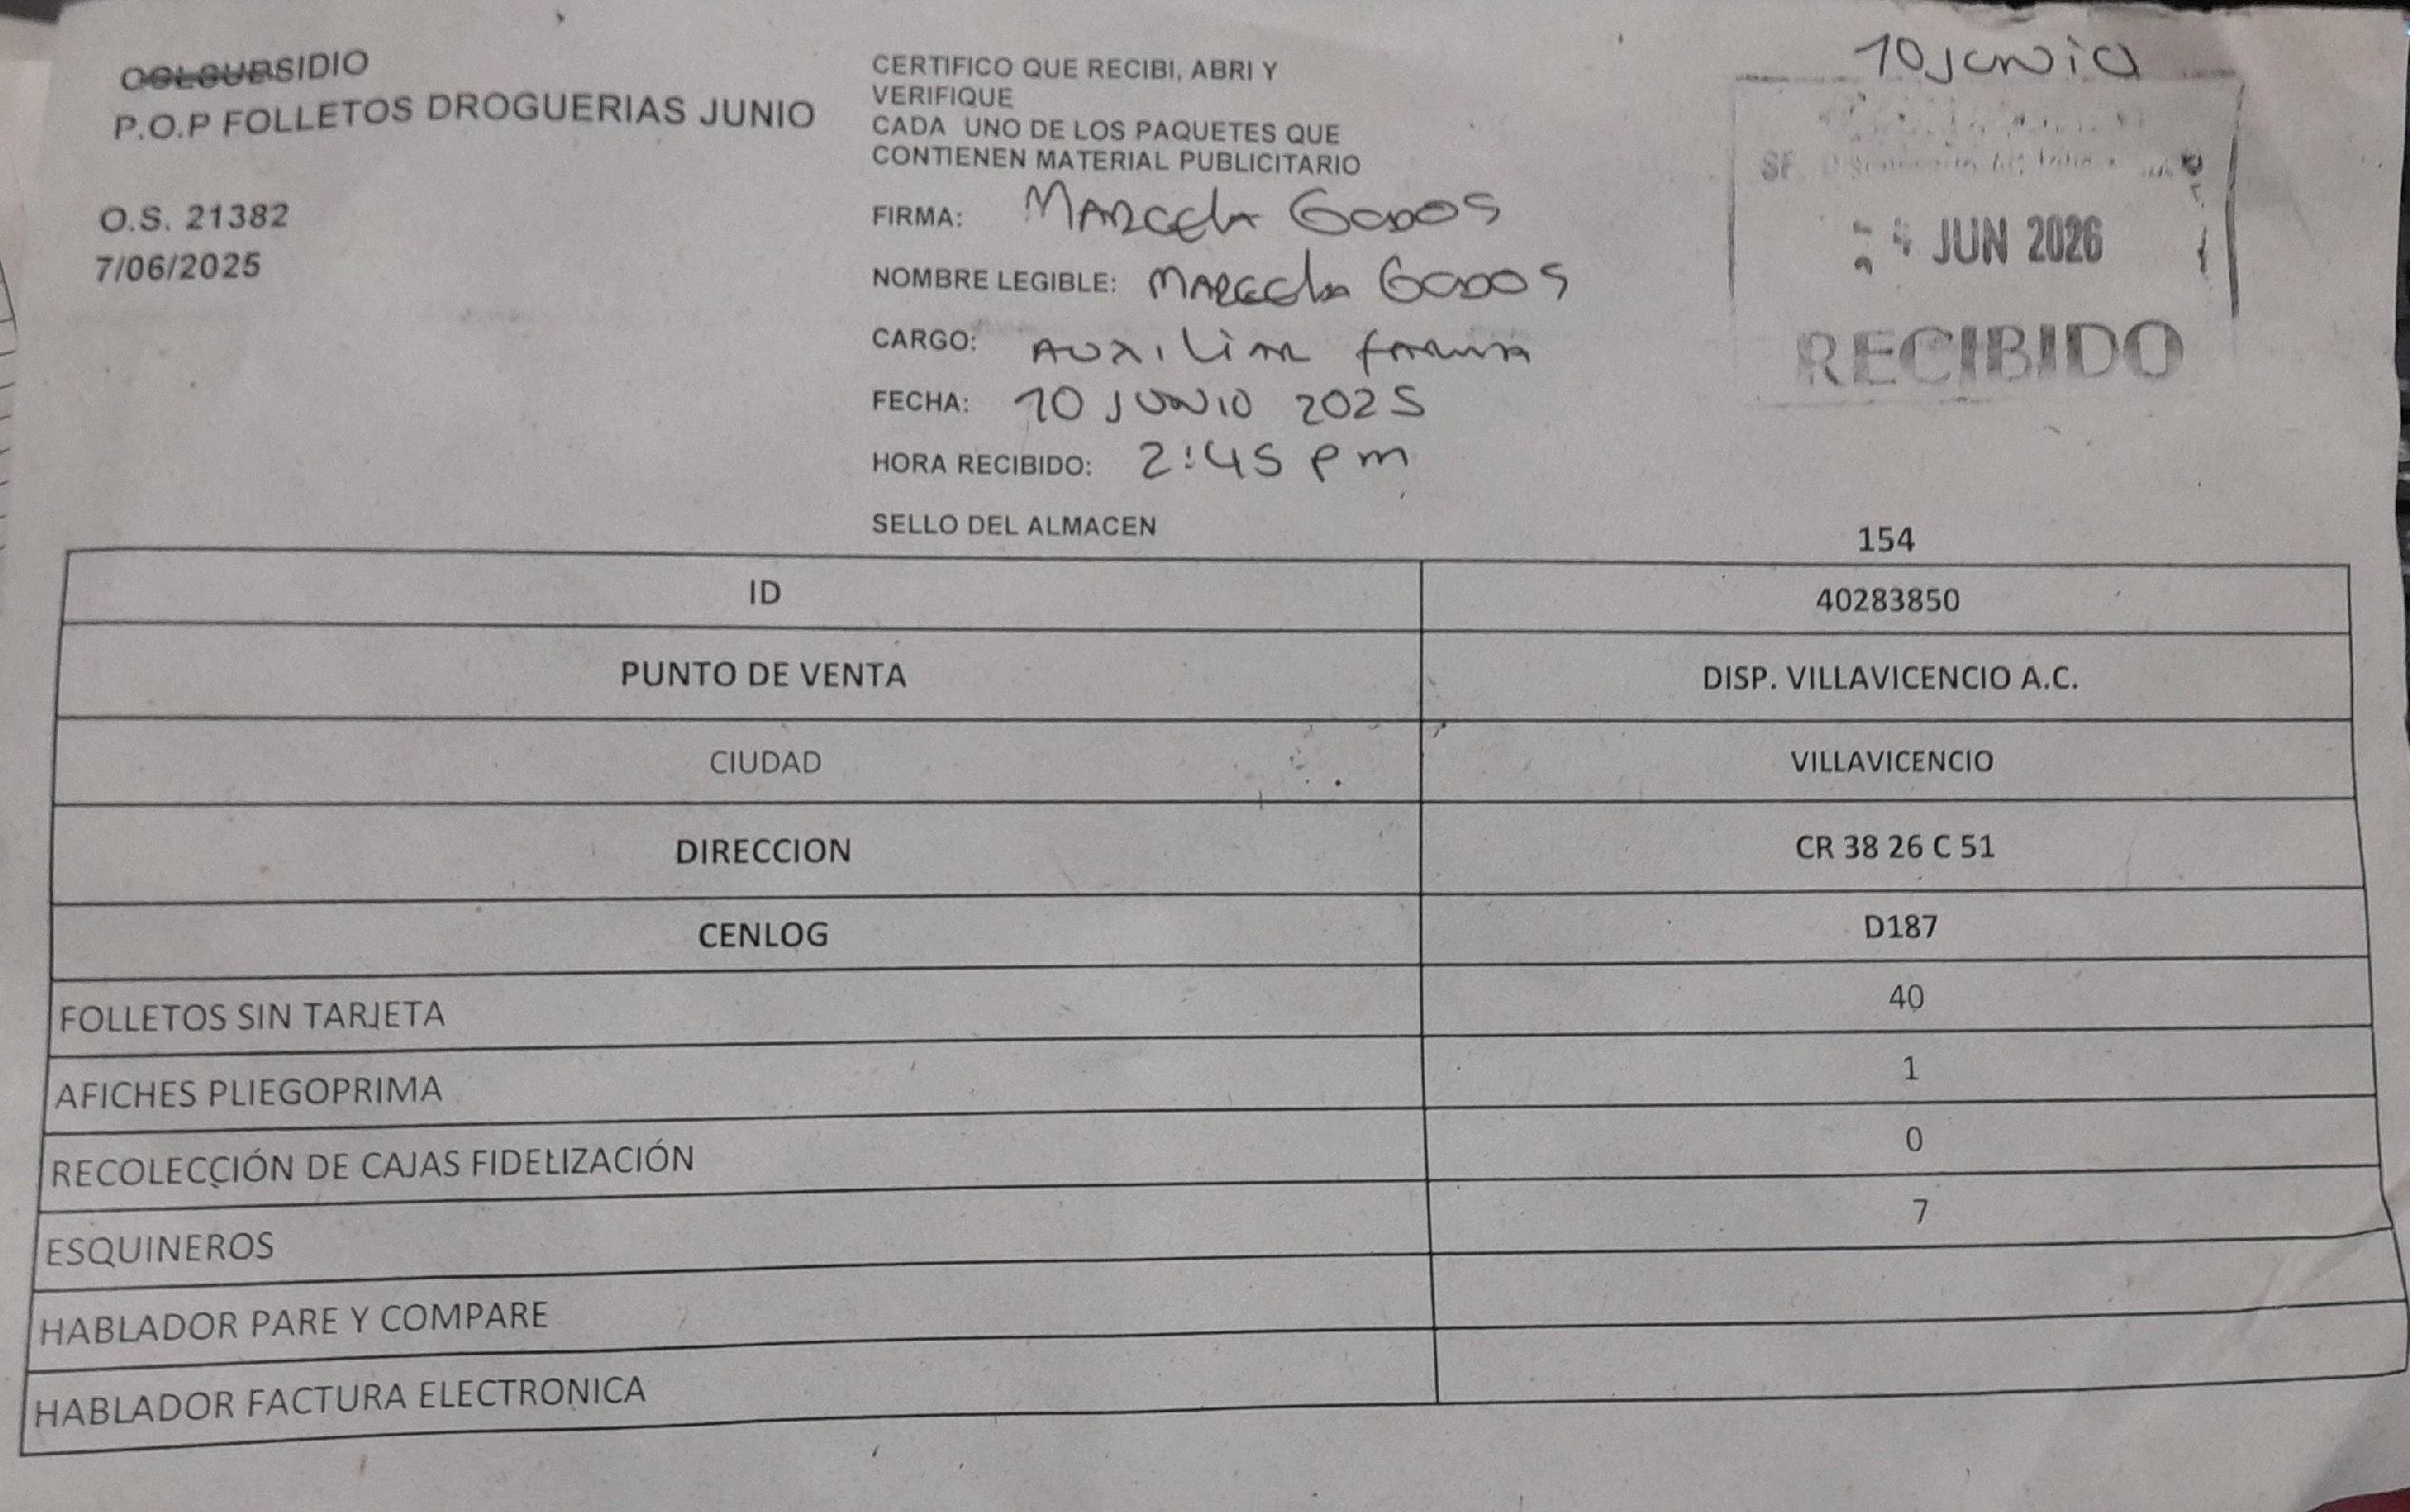 COLSUBSIDIO
P.O.P FOLLETOS DROGUERIAS JUNIO
O.S. 21382
7/06/2025
CERTIFICO QUE RECIBI, ABRI Y
VERIFIQUE
CADA UNO DE LOS PAQUETES QUE
CONTIENEN MATERIAL PUBLICITARIO
FIRMA: Marcela
NOMBRE LEGIBLE: Marcela
CARGO: Auxiliar
FECHA: 10 JUNIO 2025
HORA RECIBIDO: 2:45 pm
SELLO DEL ALMACEN
10 junio
JUN 2026
RECIBIDO
154
ID 40283850
PUNTO DE VENTA DISP. VILLAVICENCIO A.C.
CIUDAD VILLAVICENCIO
DIRECCION CR 38 26 C 51
CENLOG D187
FOLLETOS SIN TARJETA 40
AFICHES PLIEGOPRIMA 1
RECOLECCIÓN DE CAJAS FIDELIZACIÓN 0
ESQUINEROS 7
HABLADOR PARE Y COMPARE
HABLADOR FACTURA ELECTRONICA